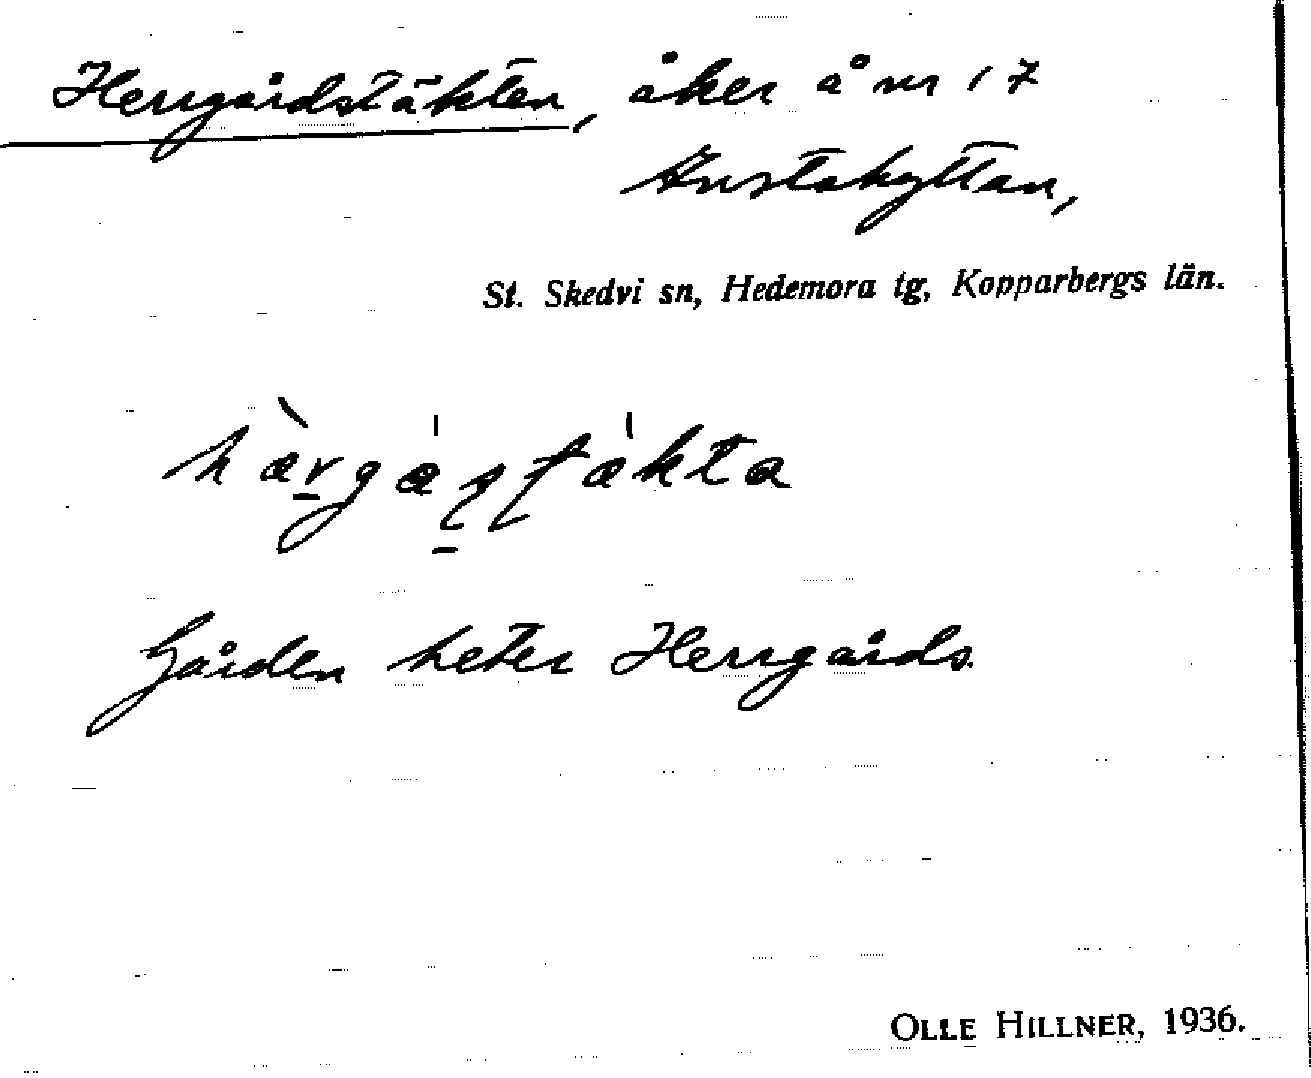 Herrgårdstäkten, åker å nr 17
Knstahyttan,
St. Skedvi sn, Hedemora tg, Kopparbergs län.
Gården heter Herrgårds.
OLLE HILLNER, 1936.